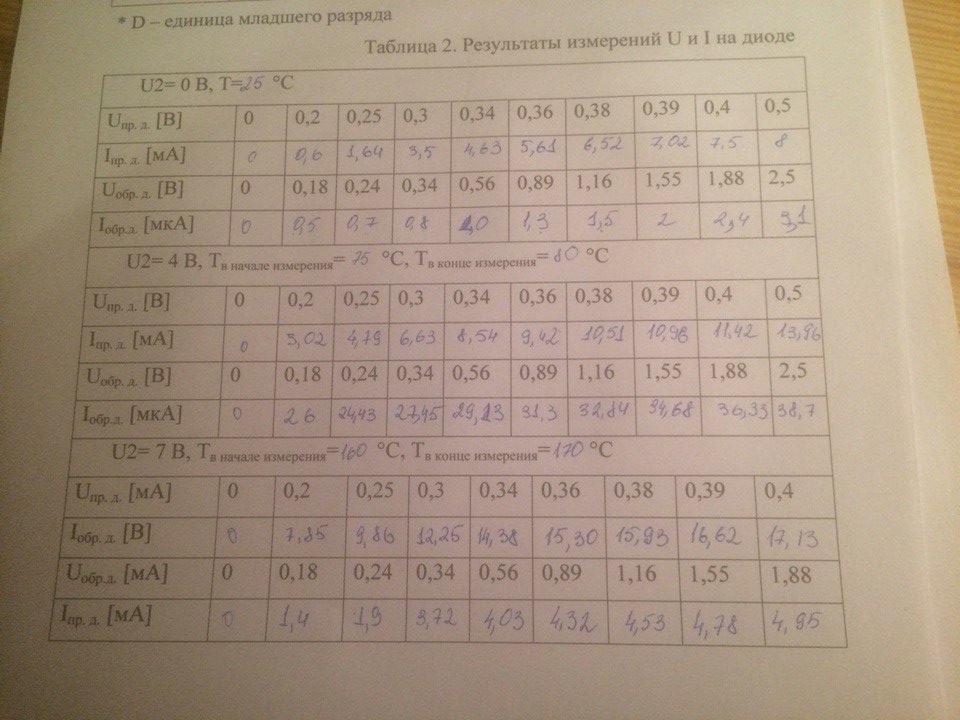 * D – единица младшего разряда
Таблица 2. Результаты измерений U и I на диоде
U2= 0 В, T=25 °C
Uпр. д. [В] 0 0,2 0,25 0,3 0,34 0,36 0,38 0,39 0,4 0,5
Iпр. д. [мА] 0 0,6 1,64 3,5 4,63 5,61 6,52 7,02 7,5 8
Uобр. д. [В] 0 0,18 0,24 0,34 0,56 0,89 1,16 1,55 1,88 2,5
Iобр.д. [мкА] 0 0,5 0,7 0,8 1,0 1,3 1,5 2 2,4 3,1
U2= 4 В, Tв начале измерения= 75 °C, Tв конце измерения= 80 °C
Uпр. д. [В] 0 0,2 0,25 0,3 0,34 0,36 0,38 0,39 0,4 0,5
Iпр. д. [мА] 0 3,02 4,79 6,63 8,54 9,42 10,51 10,98 11,42 13,96
Uобр. д. [В] 0 0,18 0,24 0,34 0,56 0,89 1,16 1,55 1,88 2,5
Iобр.д. [мкА] 0 26 24,43 27,45 29,13 31,3 32,84 34,68 36,33 38,7
U2= 7 В, Tв начале измерения=160 °C, Tв конце измерения=170 °C
Uпр. д. [мА] 0 0,2 0,25 0,3 0,34 0,36 0,38 0,39 0,4
Iобр. д. [В] 0 7,85 9,86 12,25 14,38 15,30 15,93 16,62 17,13
Uобр.д. [мА] 0 0,18 0,24 0,34 0,56 0,89 1,16 1,55 1,88
Iпр. д. [мА] 0 1,4 1,9 3,72 4,03 4,32 4,53 4,78 4,95